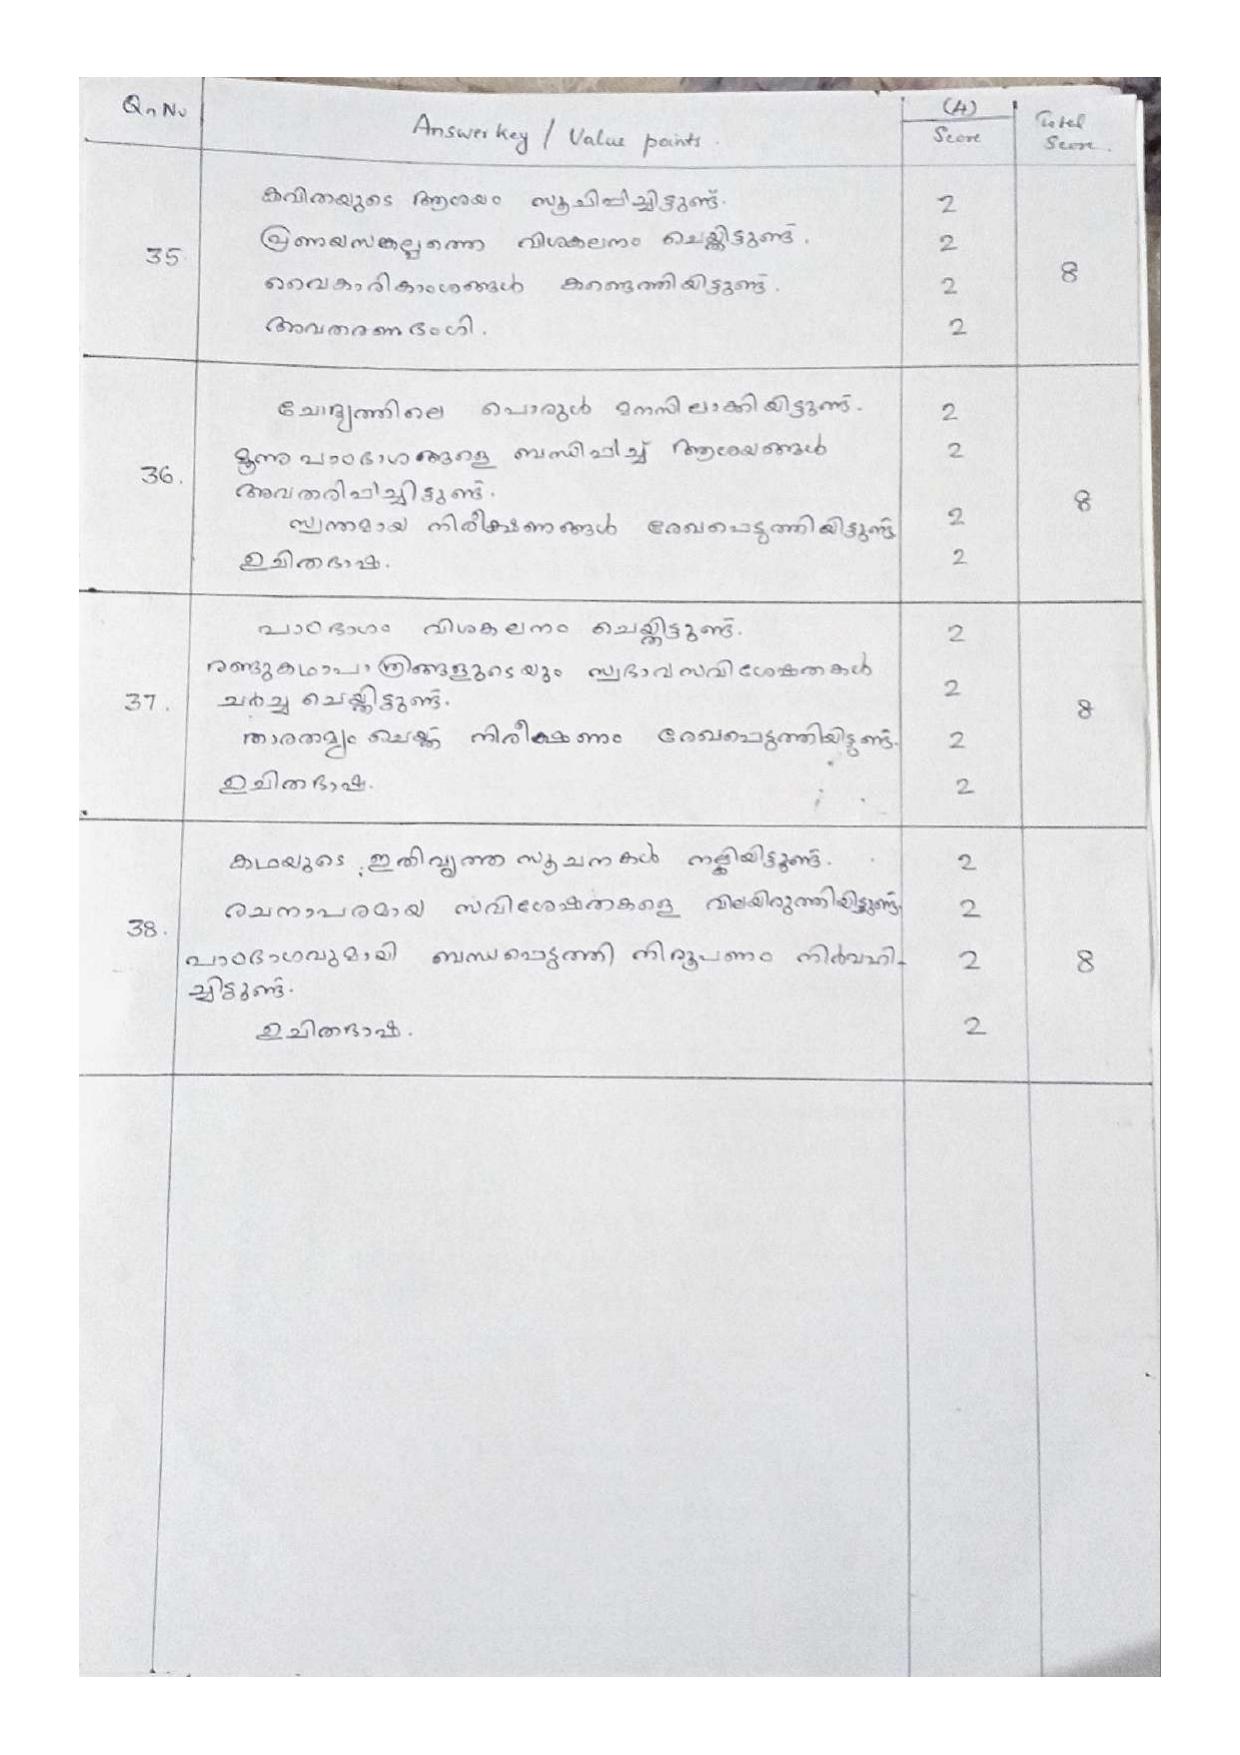 Qn No
Answer key / Value points.
(4)
Score
Total
Score.
35
കവിതയുടെ ആശയം സൂചിപ്പിച്ചിട്ടുണ്ട്. 2
പ്രണയസങ്കല്പത്തെ വിശകലനം ചെയ്തിട്ടുണ്ട്. 2
വൈകാരികാംശങ്ങൾ കണ്ടെത്തിയിട്ടുണ്ട്. 2
അവതരണഭംഗി. 2
8
36.
ചോദ്യത്തിലെ പൊരുൾ മനസിലാക്കിയിട്ടുണ്ട്. 2
മൂന്നു പാഠഭാഗങ്ങളെ ബന്ധിപ്പിച്ച് ആശയങ്ങൾ 2
അവതരിപ്പിച്ചിട്ടുണ്ട്.
സ്വന്തമായ നിരീക്ഷണങ്ങൾ രേഖപ്പെടുത്തിയിട്ടുണ്ട് 2
ഉചിതഭാഷ. 2
8
37.
പാഠഭാഗം വിശകലനം ചെയ്തിട്ടുണ്ട്. 2
രണ്ടുകഥാപാത്രങ്ങളുടെയും സ്വഭാവസവിശേഷതകൾ
ചർച്ച ചെയ്തിട്ടുണ്ട്. 2
താരതമ്യം ചെയ്ത് നിരീക്ഷണം രേഖപ്പെടുത്തിയിട്ടുണ്ട്. 2
ഉചിതഭാഷ. 2
8
38.
കഥയുടെ ഇതിവൃത്ത സൂചനകൾ നല്കിയിട്ടുണ്ട്. 2
രചനാപരമായ സവിശേഷതകളെ വിലയിരുത്തിയിട്ടുണ്ട്. 2
പാഠഭാഗവുമായി ബന്ധപ്പെടുത്തി നിരൂപണം നിർവഹി- 2
ച്ചിട്ടുണ്ട്.
ഉചിതഭാഷ. 2
8